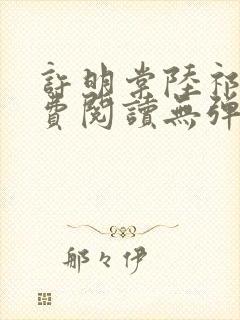 許明棠陸祁
費閱讀無彈
那々伊